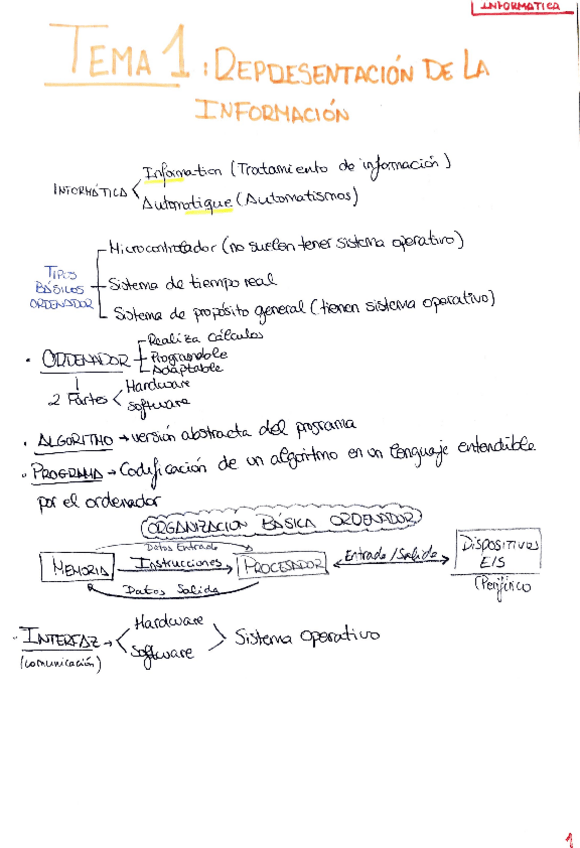 INFORMATICA
TEMA 1: REPRESENTACIÓN DE LA
INFORMACIÓN
INFORMÁTICA < Information (Tratamiento de información)
Automatique (Automatismos)
TIPOS BÁSICOS ORDENADOR
Microcontrolador (no suelen tener sistema operativo)
Sistema de tiempo real
Sistema de propósito general (tienen sistema operativo)
· ORDENADOR
Realiza cálculos
Programable
Adaptable
2 Partes < Hardware
Software
· ALGORITMO → versión abstracta del programa
· PROGRAMA → Codificación de un algoritmo en un lenguaje entendible
por el ordenador
ORGANIZACION BÁSICA ORDENADOR
Datos Entrada
MEMORIA Instrucciones PROCESADOR Entrada/Salida Dispositivos E/S
Datos Salida
(Periférico
· INTERFAZ → < Hardware
(comunicación) Software > Sistema Operativo
1